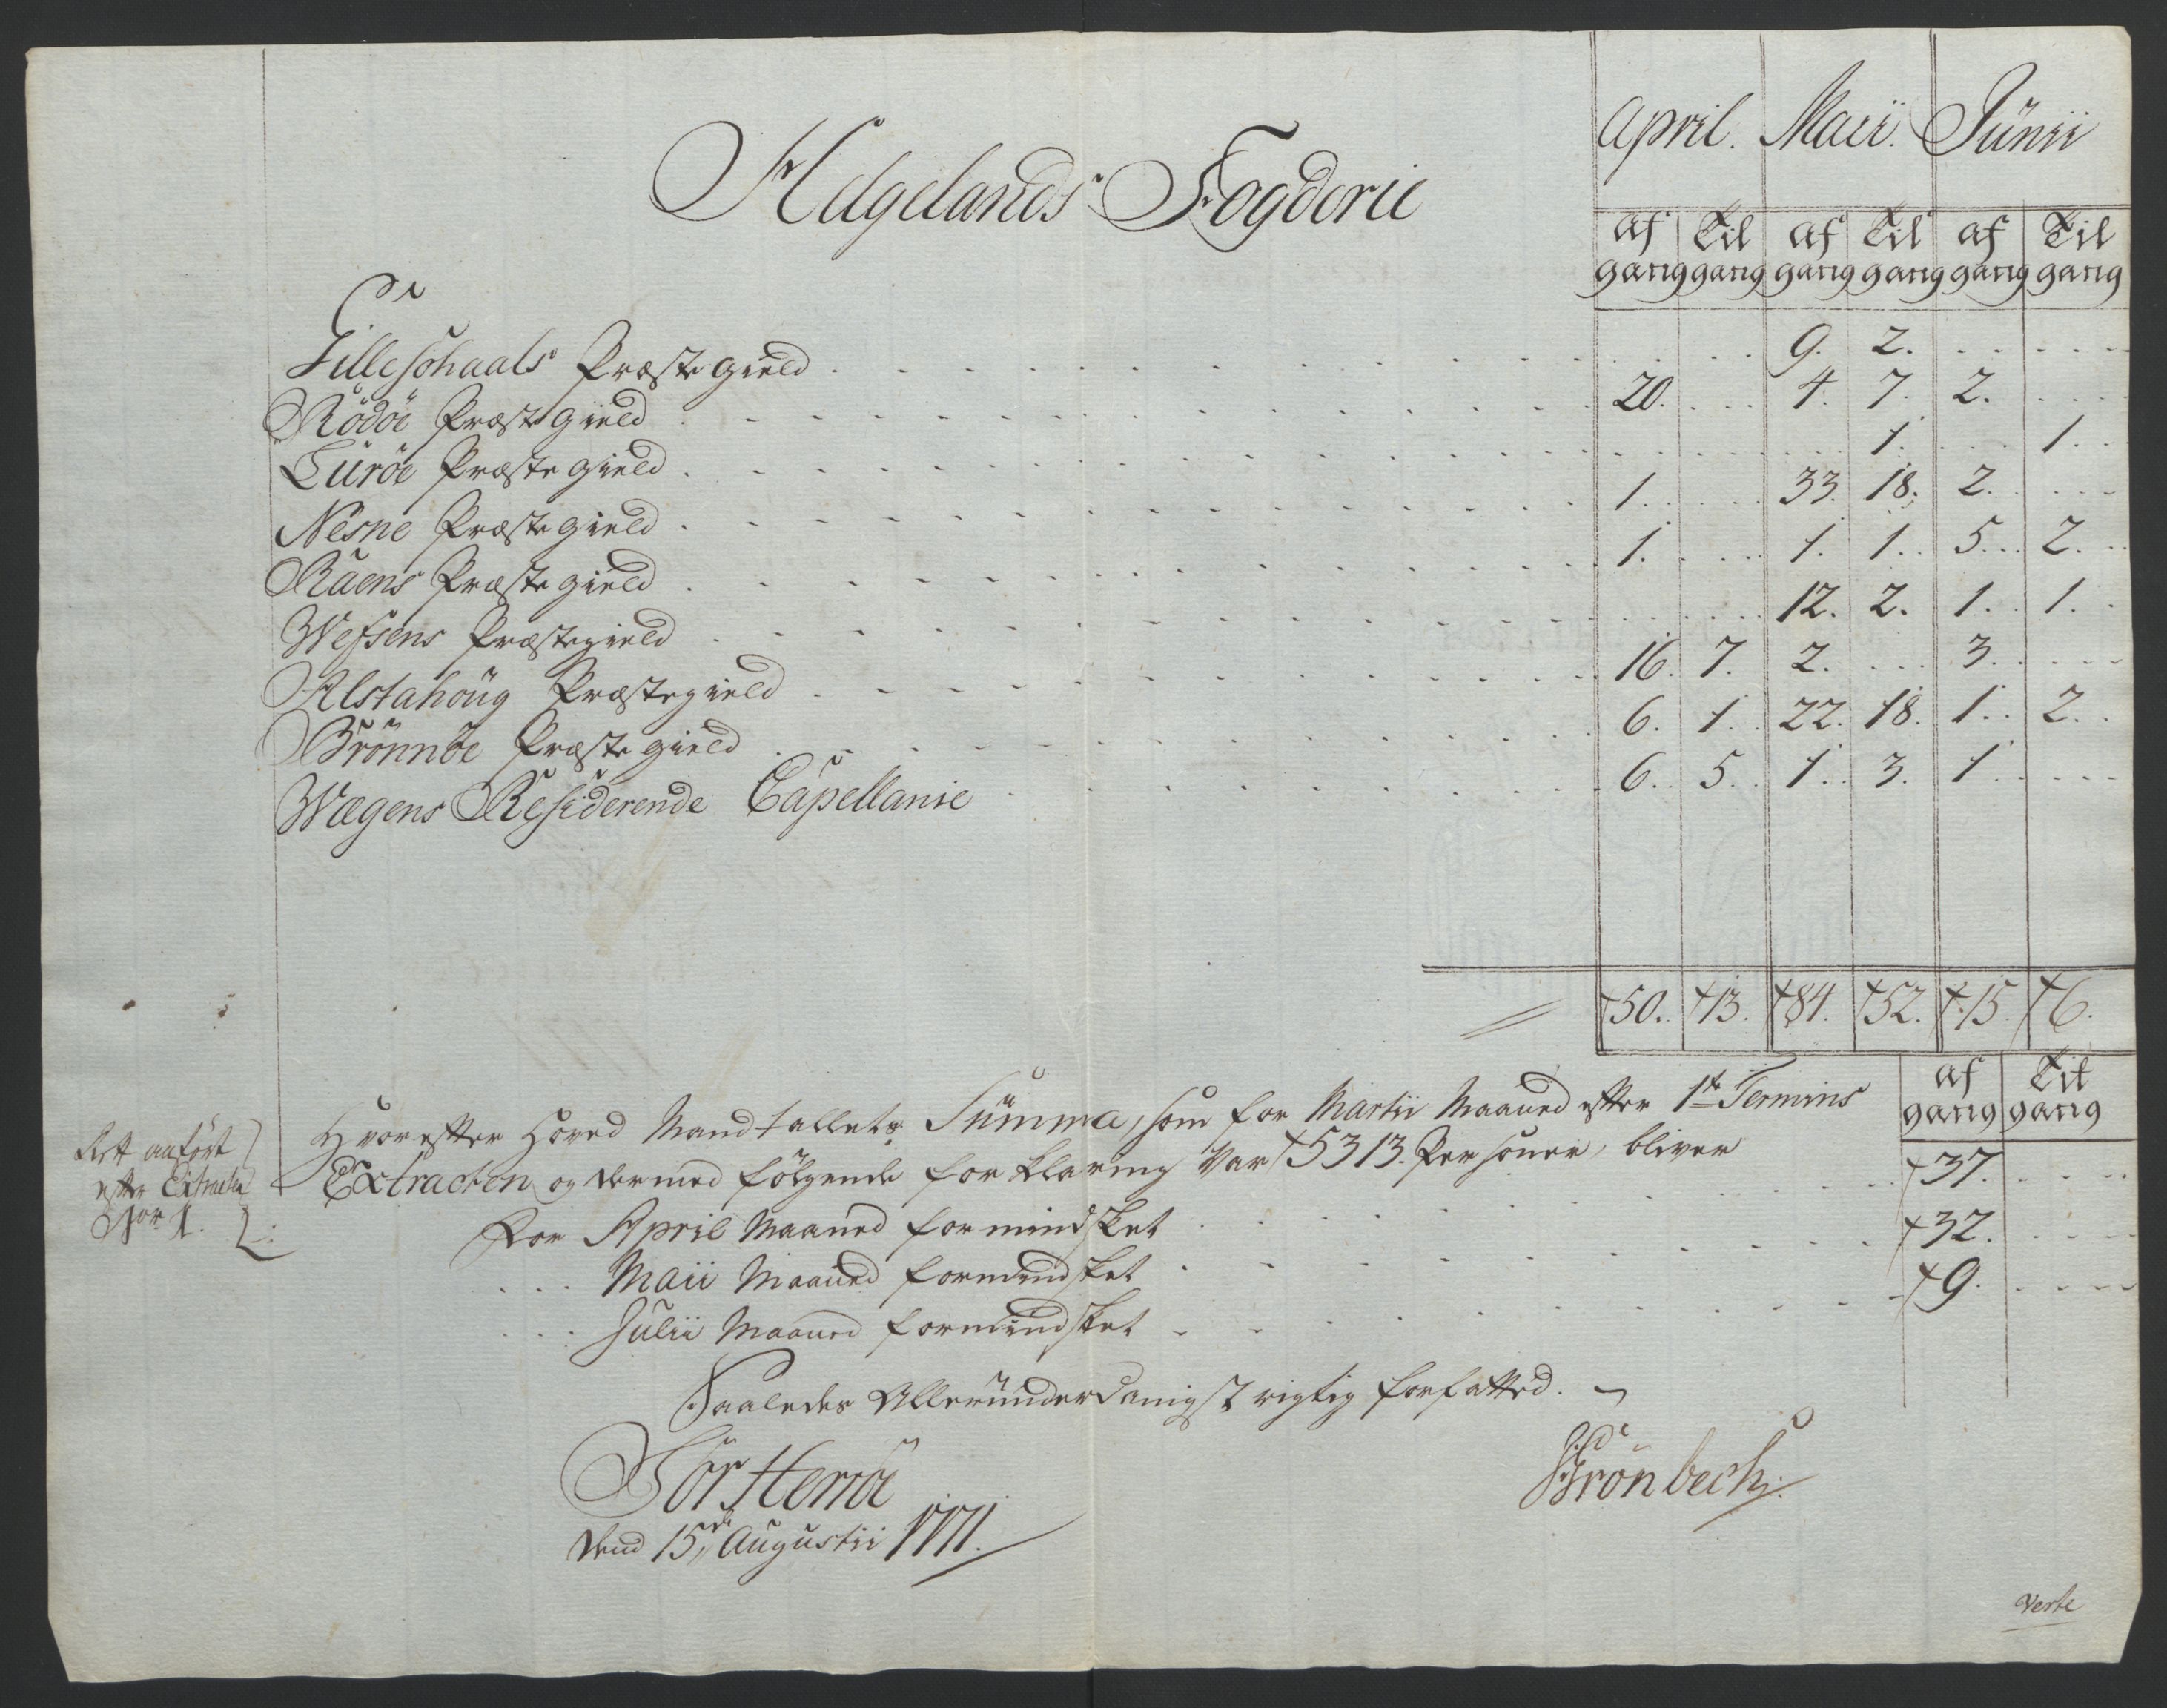 April. Maii. Junii
Helgelands Fogderie
Af Til Af Til Af Til
gang gang gang gang gang gang
Gilleschaals Præstegield . . . . 9. 2. . . .
Rödöe Præstegield . . . 20. . . . 4. 7. 2. . . .
Luröe Præstegield . . . . 1. . . . 1. .
Nesne Præstegield . . . 1. . . . 33. 18. 2. . . .
Raens Præstegield . . . 1. . . . 1. 1. . 5. . . 2. .
Wefsens Præstegield . . . . 12. 2. 1. . 1. .
Alstahoug Præstegield . . . 16. 7. 2. . . . 3. . . .
Brönnöe Præstegield . . . 6. 1. . 22. 18. 1. . 2. .
Wægens Residerende Capellanie . . . 6. . 5. . 1. . 3. 1 . . . .
50. 13. 84. 52. 15. 6.
Af Til
gang gang
Hvorefter Hoved Mandtallets Summa, som for Martii Maaned efter 1te Termins
Extracten og dermed fölgende forklaring var 5313. Personer, bliver
For April Maaned formindsket . . . 37. . . .
. . . Maii Maaned formindsket . . . 32. . . .
. . . Julii Maaned formindsket . . . 9. . . .
Ret anfört
efter Extracten
No 1.
Saaledes Allerunderdanigst rigtig forfatted.
Sör Herröe
dend 15de Augustii 1771.
Brönbech
Verte